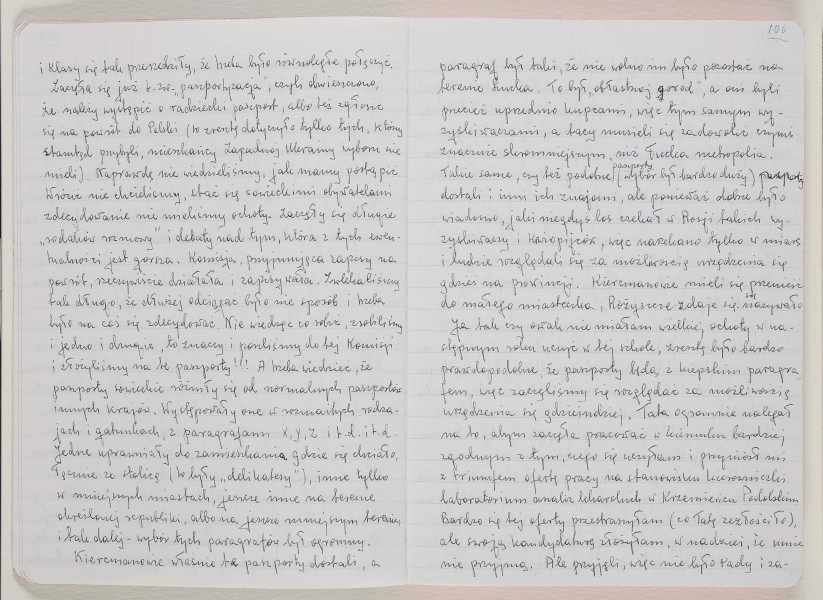 i klasy się tak przerzedziły, że trzeba było równoległe połączyć.
Zaczęła się już t. zw. „paszportyzacja", czyli obwieszczono,
że należy wystąpić o radziecki paszport, albo też zgłosić
się na powrót do Polski (to zresztą dotyczyło tylko tych, którzy
stamtąd przybyli, mieszkańcy Zapadnoj Ukrainy wyboru nie
mieli). Naprawdę nie wiedzieliśmy, jak mamy postąpić
Wrócić nie chcieliśmy, stać się sowieckimi obywatelami
zdecydowanie nie mieliśmy ochoty. Zaczęły się długie
„rodaków rozmowy" i debaty nad tym, która z tych ewen-
tualności jest gorsza. Komisja, przyjmująca zapisy na
powrót, rzeczywiście działała i zapisywała. Zwlekaliśmy
tak długo, że dłużej odciągać było nie sposób i trzeba
było na coś się zdecydować. Nie wiedząc co robić, zrobiliśmy
i jedno i drugie, to znaczy i poszliśmy do tej Komisji
i złożyliśmy na te paszporty!!! A trzeba wiedzieć, że
paszporty sowieckie różniły się od normalnych paszportów
innych krajów. Występowały one w rozmaitych rodza-
jach i gatunkach, z paragrafami x, y, z i t. d. i t. d.
Jedne uprawniały do zamieszkania gdzie się chciało,
łącznie ze stolicą (to były „delikatesy"), inne tylko
w mniejszych miastach, jeszcze inne na terenie
określonej republiki, albo na jeszcze mniejszym terenie
i tak dalej - wybór tych paragrafów był ogromny.
Kiercmanowie właśnie te paszporty dostali, a
106
paragraf był taki, że nie wolno im było pozostać na
terenie Łucka. To był „obłastnoj gorod", a oni byli
przecież uprzednio kupcami, więc tym samym wy-
zyskiwaczami, a tacy musieli się zadowolić czymś
znacznie skromniejszym, niż Łucka metropolia.
Takie same, czy też podobne paszporty (wybór był bardzo duży)
dostali i inni ich znajomi, ale ponieważ dobrze było
wiadomo, jaki niegdyś los czekał w Rosji takich wy-
zyskiwaczy i krwiopijców, więc narzekano tylko w miarę
i ludzie rozglądali się za możliwością urządzenia się
gdzieś na prowincji. Kiercmanowie mieli się przenieść
do małego miasteczka, Rożyszcze zdaje się się nazywało
Ja tak czy owak nie miałam wielkiej ochoty w na-
stępnym roku uczyć w tej szkole, zresztą było bardzo
prawdopodobne, że paszporty będą z kiepskim paragra-
fem, więc zaczęliśmy się rozglądać za możliwością
urządzenia się gdzieindziej. Tata ogromnie nalegał
na to, abym zaczęła pracować w kierunku bardziej
zgodnym z tym, czego się uczyłam i przyniósł mi
z triumfem ofertę pracy na stanowisku kierowniczki
laboratorium analiz lekarskich w Krzemieńcu Podolskim
Bardzo się tej oferty przestraszyłam (co Tatę zezłościło),
ale swoją kandydaturę złożyłam, w nadziei, że mnie
nie przyjmą. Ale przyjęli, więc nie było rady i za-